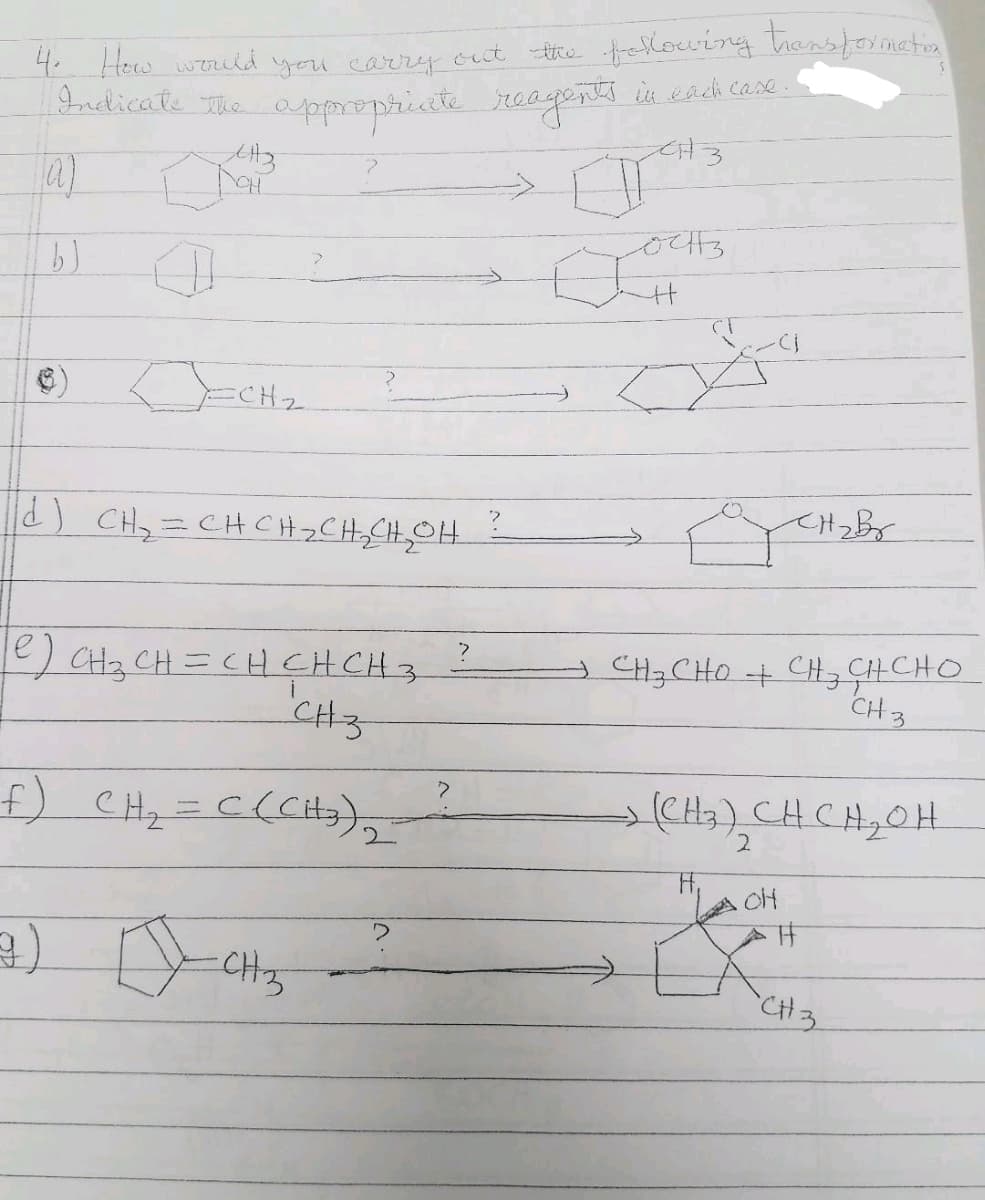 4. How would you carry out the following transformation
Indicate the appropriate reagents in each case.
a) CH3 OH ? → CH3
b) ? → OCH3 H
c) =CH2 ? → Cl C-Cl
d) CH2 = CH CH2CH2CH2OH ? → O CH2Br
e) CH3 CH = CH CHCH3 ? → CH3CHO + CH3 CHCHO
CH3 CH3
f) CH2 = C(CH3)2 ? → (CH3)2 CH CH2OH
g) CH3 ? → H OH H CH3